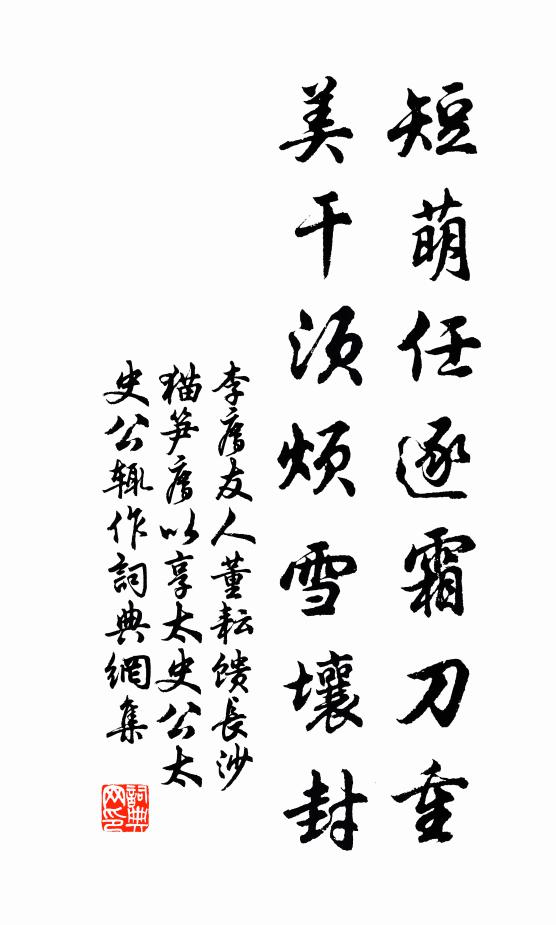 短萌任逐霜刀重
美干须烦雪壤封
李廌友人董耘馈長沙
猫笋廌以享太史公太
史公辄作詞典網集
詞典網印